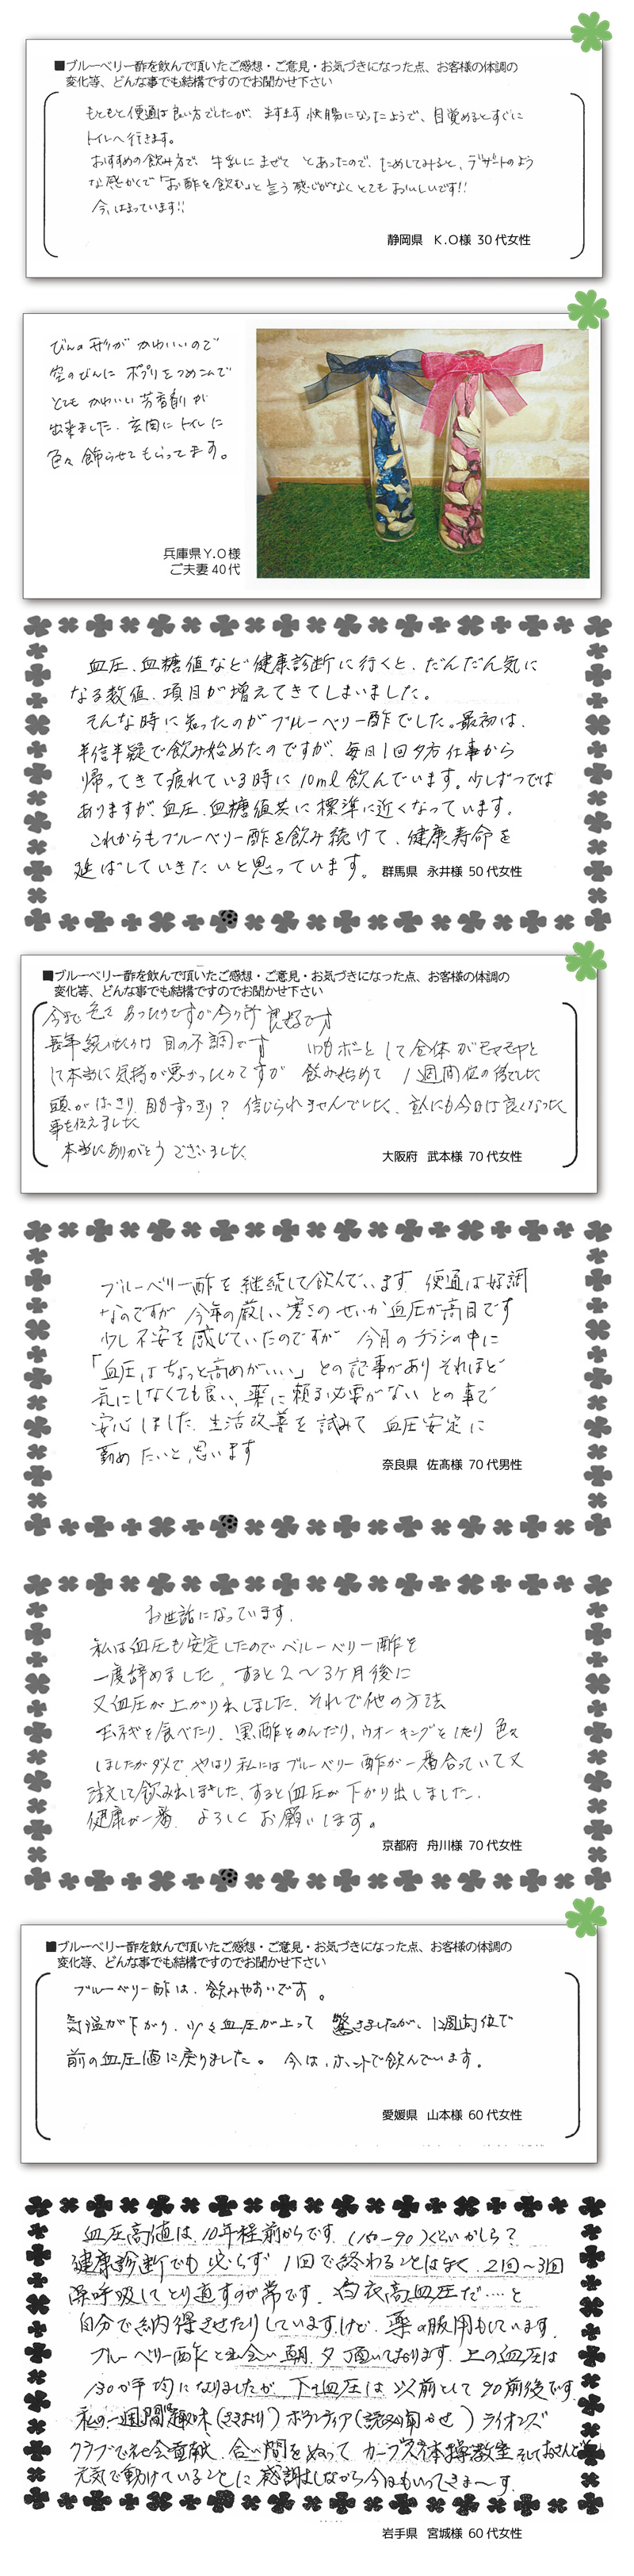 ■ブルーベリー酢を飲んで頂いたご感想・ご意見・お気づきになった点、お客様の体調の
変化等、どんな事でも結構ですのでお聞かせ下さい
もともと便通は良い方でしたが、ますます快腸になったようで、目覚めるとすぐに
トイレへ行きます。
おすすめの飲み方で、牛乳にまぜて とあったので、ためしてみると、デザートのよう
な感かくで「お酢を飲む」と言う感じがなくとてもおいしいです!!
今、はまっています!!
静岡県 K.O様 30代女性
びんの形がかわいいので
空のびんに ポプリをつめこんで
とても かわいい芳香剤が
出来ました. 玄関に トイレに
色々 飾らせてもらってます。
兵庫県Y.O様
ご夫妻40代
血圧、血糖値など健康診断に行くと、だんだん気に
なる数値、項目が増えてきてしまいました。
そんな時に知ったのがブルーベリー酢でした。最初は、
半信半疑で飲み始めたのですが、毎日1回夕方仕事から
帰ってきて疲れている時に10ml飲んでいます。少しずつでは
ありますが、血圧、血糖値共に標準に近くなっています。
これからもブルーベリー酢を飲み続けて、健康寿命を
延ばしていきたいと思っています。
群馬県 永井様 50代女性
■ブルーベリー酢を飲んで頂いたご感想・ご意見・お気づきになった点、お客様の体調の
変化等、どんな事でも結構ですのでお聞かせ下さい
今まで色々あったのですが今の所良好です
長年続いたのは目の不調です いつもボーとして全体がモヤモヤと
して本当に気持が悪かったのですが 飲み始めて 1週間位の後でした
頭がはっきり、目もすっきり? 信じられませんでした、 にも今日は良くなった
事を伝えました
本当にありがとうございました.
大阪府 武本様 70代女性
ブルーベリー酢を継続して飲んでいます 便通は好調
なのですが 今年の厳しい寒さのせいか血圧が高目です
少し不安を感じていたのですが 今月のチラシの中に
「血圧はちょっと高めがいい」との記事があり それほど
気にしなくても良い、薬に頼る必要がない との事で
安心しました. 生活改善を試みて 血圧安定に
勤めたいと思います
奈良県 佐髙様 70代男性
お世話になっています.
私は血圧も安定したのでベルーベリー酢を
一度辞めました。すると2〜3ヶ月後に
又血圧が上がり出しました. それで他の方法
玉ネギを食べたり、黒酢をのんだり、ウオーキングをしたり 色々
しましたがダメで、やはり私にはブルーベリー酢が一番合っていて又
注文して飲み出しました、すると血圧が下がり出しました.
健康が一番、よろしくお願いします。
京都府 舟川様 70代女性
■ブルーベリー酢を飲んで頂いたご感想・ご意見・お気づきになった点、お客様の体調の
変化等、どんな事でも結構ですのでお聞かせ下さい
ブルーベリー酢は、飲みやすいです。
気温が下がり、少々血圧が上って 驚きましたが、1週間位で
前の血圧値に戻りました。今は、ホントで飲んでいます。
愛媛県 山本様 60代女性
血圧高値は10年程前からです.(150-90)くらいかしら?
健康診断でも 必らず 1回で終わることはなく、2回〜3回
深呼吸してとり直すのが常です. 白衣高血圧だ....と
自分で納得させたりしていますけど. 薬の服用もしています.
ブルーベリー酢と出会い朝、夕頂いております. 上の血圧は
130が平均になりましたが、下の血圧は以前として90前後です.
私の一週間趣味( )ボランティア(読み聞かせ)ライオンズ
クラブで社会貢献、合い間をぬって カーブスで体操教室
元気で動けていることに感謝しながら今日もいってきま〜す.
岩手県 宮城様 60代女性